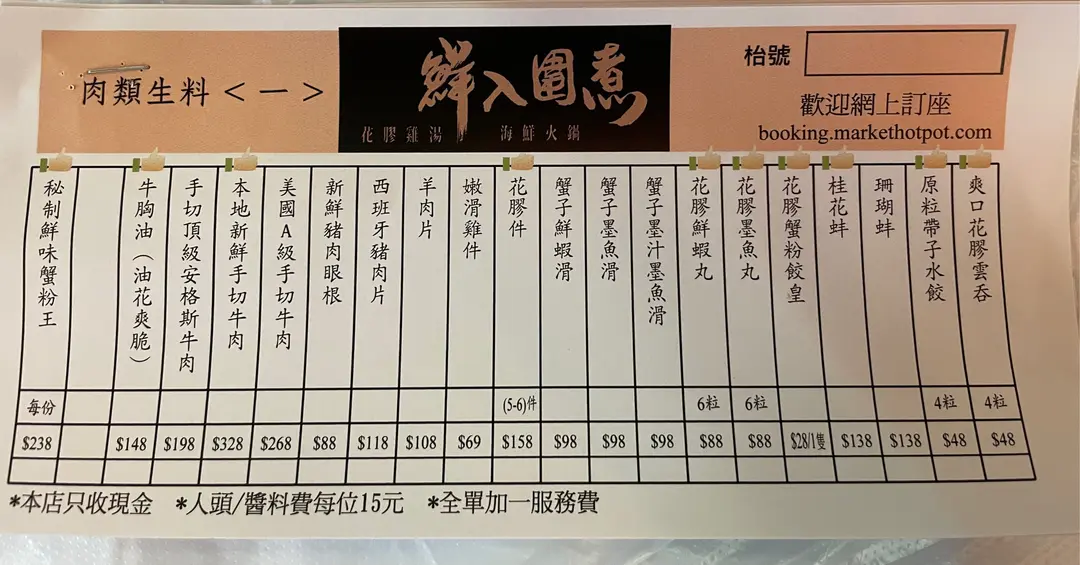 肉類生料<一>
鮮入圍煮
花膠雞湯
海鮮火鍋
枱號
歡迎網上訂座
booking.markethotpot.com
爽口花膠雲吞 4粒 $48
原粒帶子水餃 4粒 $48
珊瑚蚌 $138
桂花蚌 $138
花膠蟹粉餃皇 $28/1隻
花膠墨魚丸 6粒 $88
花膠鮮蝦丸 6粒 $88
蟹子墨汁墨魚滑 $98
蟹子墨魚滑 $98
蟹子鮮蝦滑 $98
花膠件 (5-6)件 $158
嫩滑雞件 $69
羊肉片 $108
西班牙豬肉片 $118
新鮮豬肉眼根 $88
美國A級手切牛肉 $268
本地新鮮手切牛肉 $328
手切頂級安格斯牛肉 $198
牛胸油（油花爽脆） $148
秘制鮮味蟹粉王 每份 $238
*本店只收現金 *人頭/醬料費每位15元 *全單加一服務費